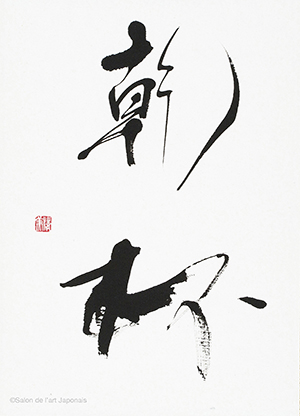 乾
杯
©Salon de l'art Japonais